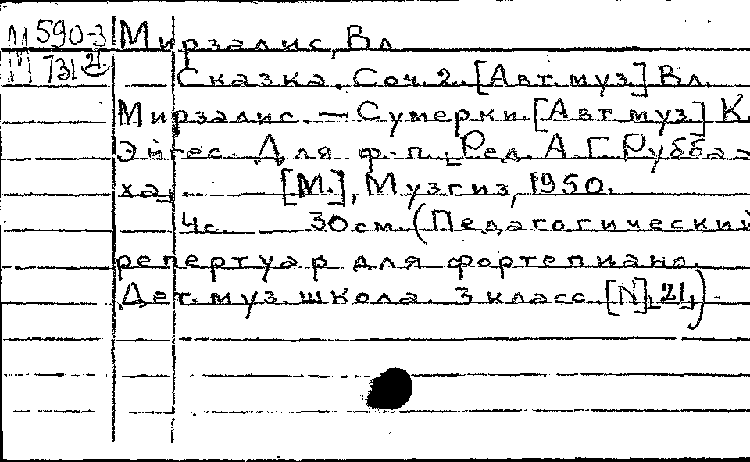 М 590-3 Мирзалис, Вл.
М 731 21 Сказка. Соч. 2. [Авт. муз.] Вл.
Мирзалис. — Сумерки. [Авт. муз.] К.
Эйгес. Для ф.-п. Ред. А. Г. Рубба-
ха. [М.], Музгиз, 1950.
4 с. 30 см. (Педагогический
репертуар для фортепиано.
Дет. муз. школа. 3 класс. [N] 21)